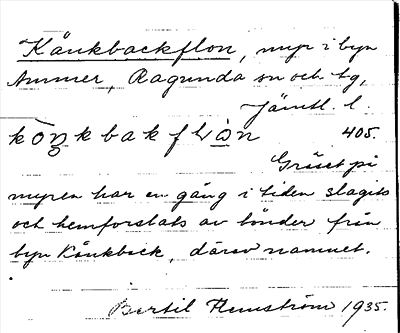 Kånkbackflon, myr i byn
Ammer, Ragunda sn och tg,
Jämtl. l.
kòŋkbakflòn 405.
Gräset på
myren har en gång i tiden slagits
och hemforslats av bönder från
byn Kånkback, därav namnet.
Bertil Flemström 1935.